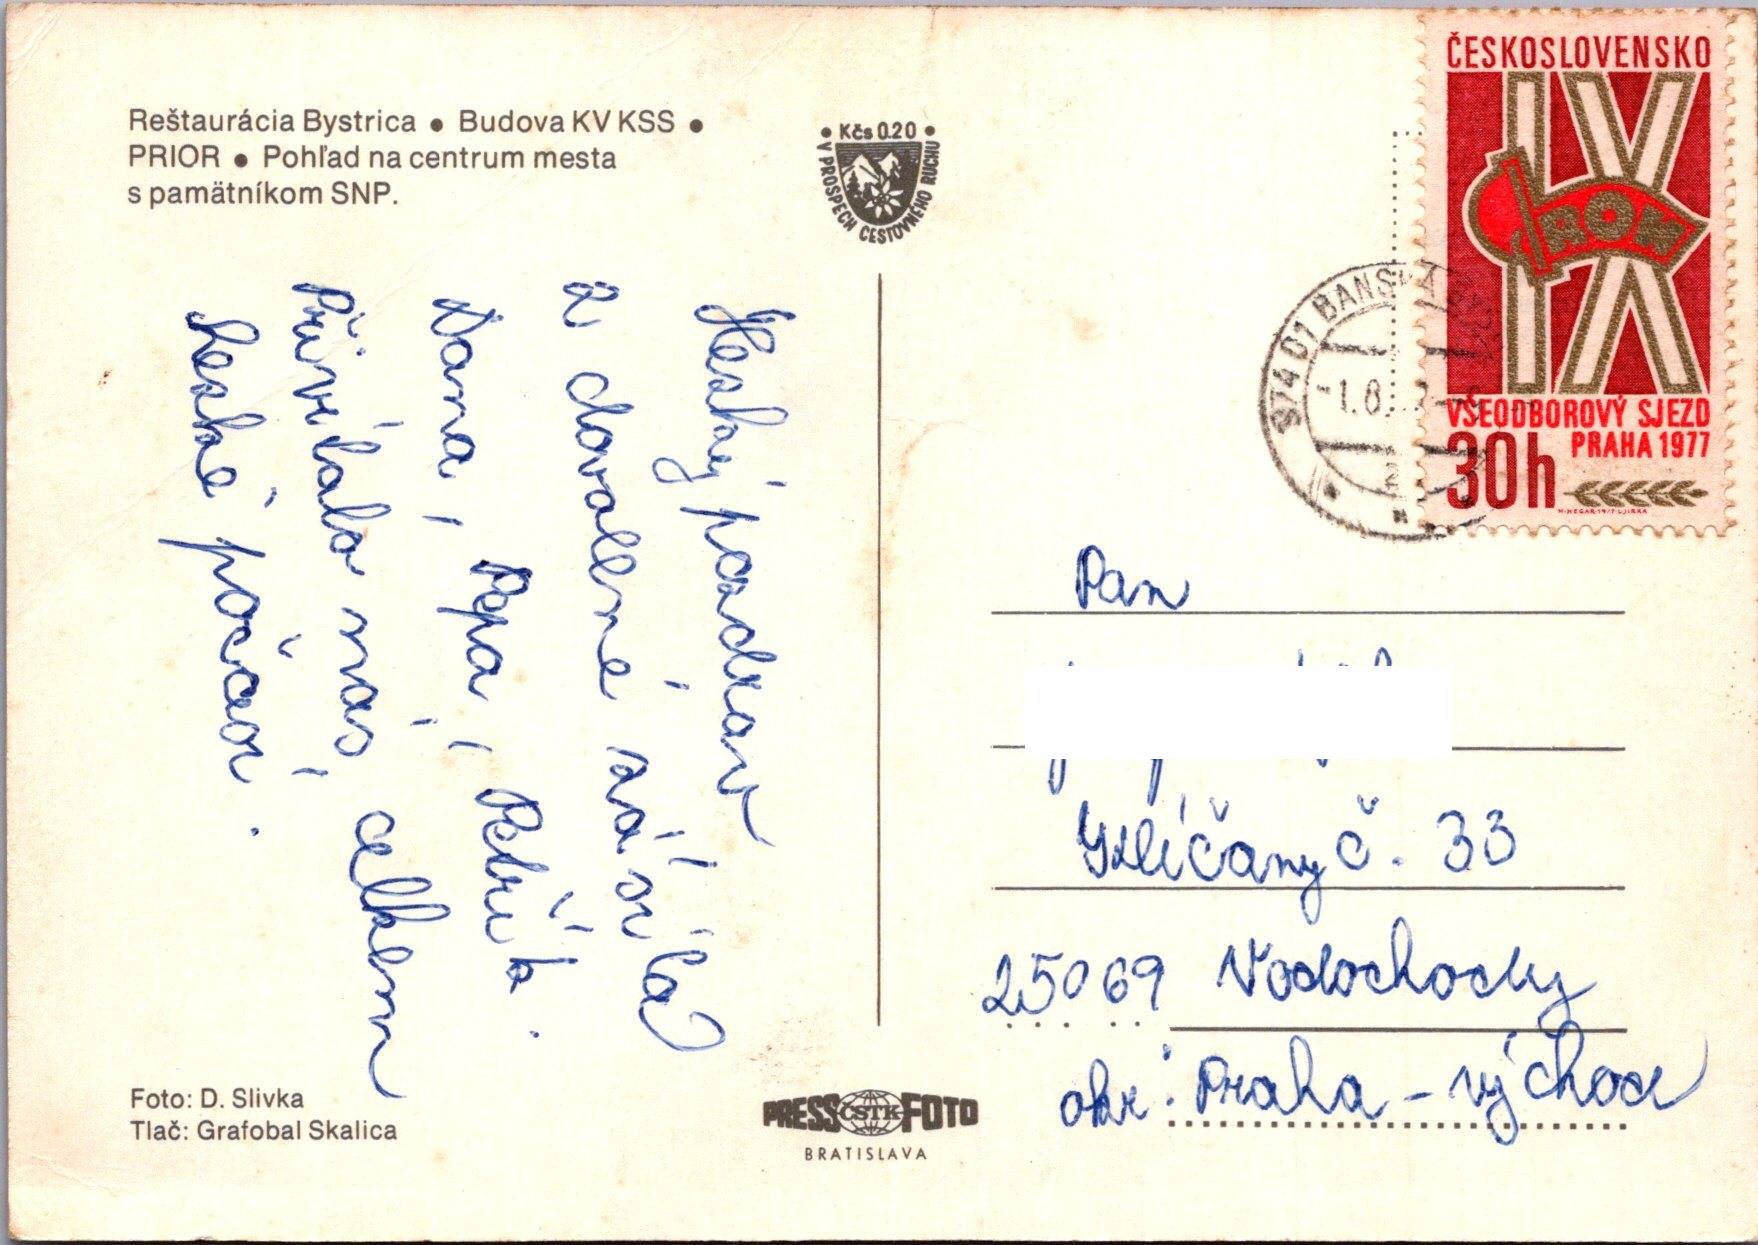 Reštaurácia Bystrica • Budova KV KSS •
PRIOR • Pohľad na centrum mesta
s pamätníkom SNP.
• Kčs 0.20 •
V PROSPECH CESTOVNÉHO RUCHU
Hezký pozdrav
z dovolené zasílá
Dana, Pepa, Petřík.
Přivítalo nás celkem
hezké počasí.
Foto: D. Slivka
Tlač: Grafobal Skalica
PRESS ČSTK FOTO
BRATISLAVA
ČESKOSLOVENSKO
IX
ROH
VŠEODBOROVÝ SJEZD
PRAHA 1977
30h
974 01 BANSKÁ
-1.8.
Pan
Klíčany č. 33
25069 Vodochody
okr: Praha - východ